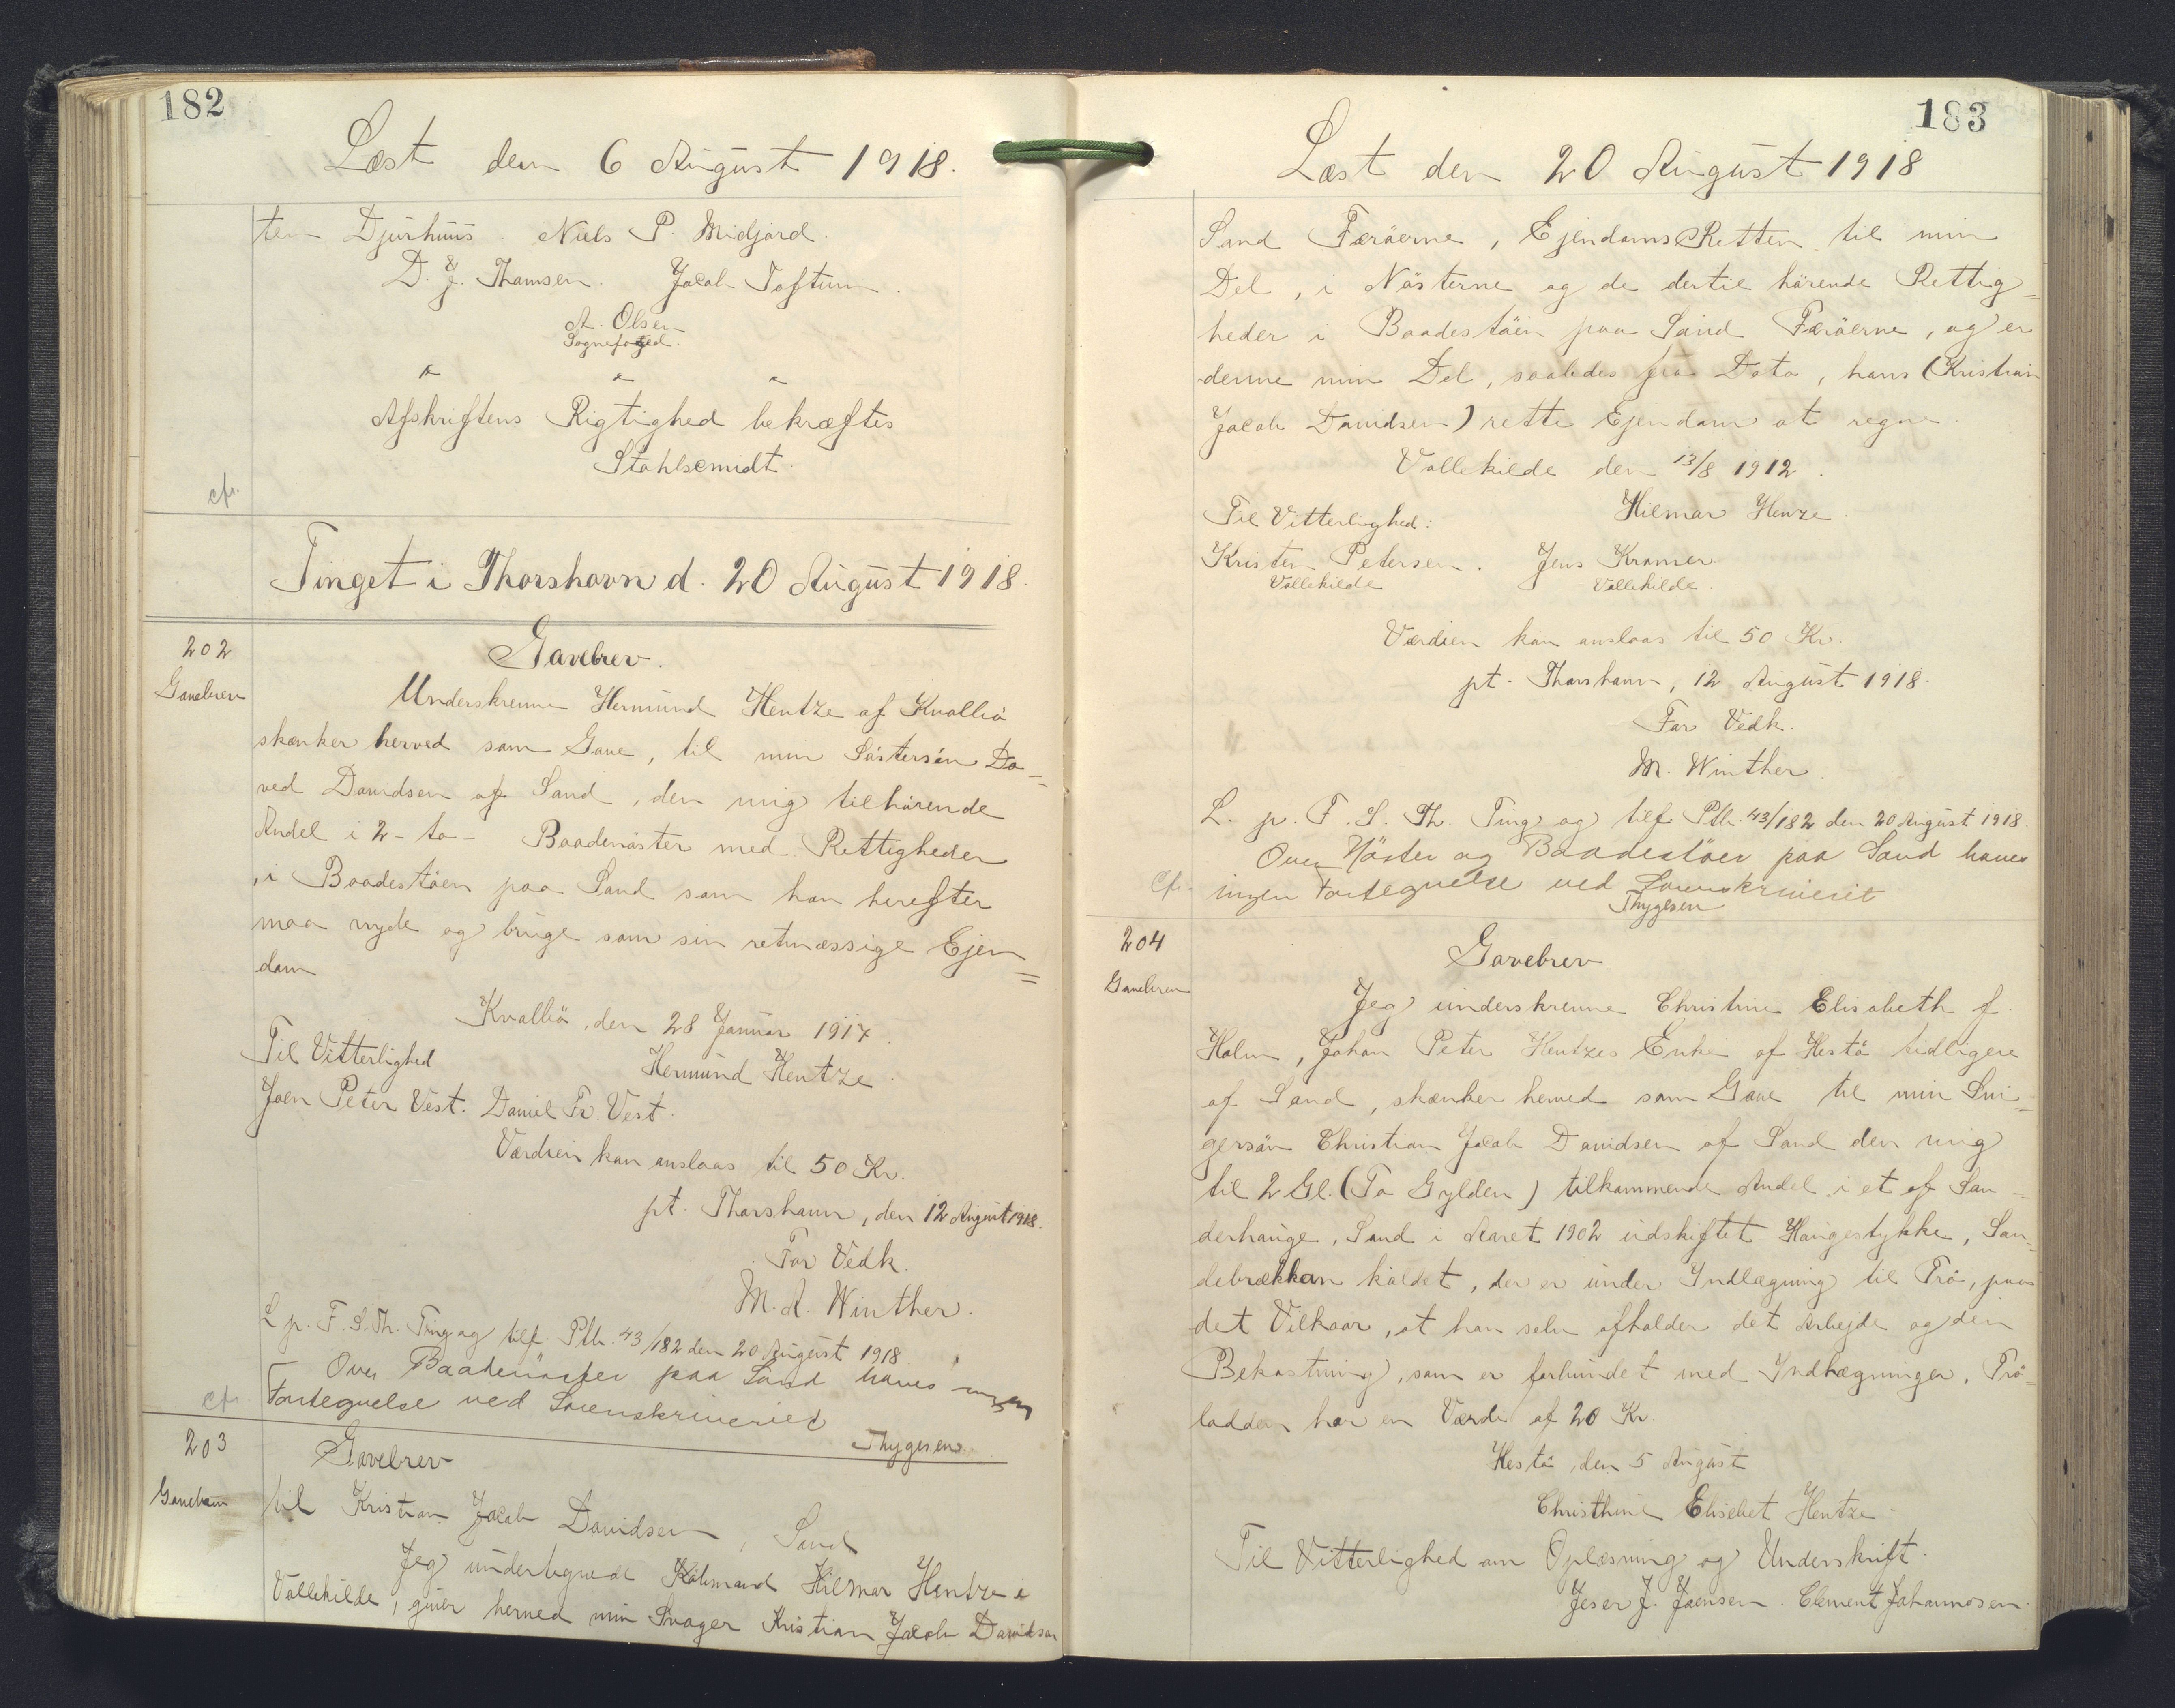 182
Læst den 6 August 1918.
ten Djurhuus. Niels P. Midjord.
D. J. Thomsen. Jacob Toftum.
A. Olsen
Sognefoged.
Afskriftens Rigtighed bekræftes
Stahlscmidt.
cfr.
Tinget i Thorshavn d. 20 August 1918.
202
Gavebrev
Gavebrev.
Underskrevne Hermund Hentze af Kvalbö
skænker herved som Gave, til min Söstersön Da-
ved Davidsen af Sand, den mig tilhörende
Andel i 2 - to - Baadenöster med Rettigheder
i Baadestöen paa Sand som han herefter
maa nyde og bruge som sin retmæssige Ejen=
dom
Kvalbö, den 28 Januar 1917.
Til Vitterlighed
Hermund Hentze.
Joen Peter Vest. Daniel Fr. Vest.
Værdien kan anslaas til 50 Kr.
pt. Thorshavn, den 12 August 1918.
For Vedk.
M. A. Winther.
L. p. F. S. Th. Ting og tilf. Ptb. 43/182 den 20 August 1918
Over Baadenöster paa Sand haves ingen
Fortegnelse ved Sorenskriveriet
cfr.
Thygesen
203
Gavebrev
Gavebrev
til Kristian Jacob Davidsen, Sand
Jeg undertegnede Hilmar Hentze i
Vallekilde, giver herved min Svager Kristian Jacob Davidsen
183
Læst den 20 August 1918
Sand Færöerne, EjendomsRetten til min
Del, i Nösterne og de dertil hörende Rettig=
heder i Baadestöen paa Sand Færöerne, og er
denne min Del, saaledes fra Dato, hans (Kristian
Jacob Davidsen) rette Ejendom at regne
Vallekilde den 13/8 1912.
Til Vitterlighed:
Hilmar Henze.
Kristen Petersen. Jens Kramer.
Vallekilde Vallekilde.
Værdien kan anslaas til 50 Kr.
pt. Thorshavn, 12 August 1918.
For Vedk.
M. Winther.
L. p. F. S. Th. Ting og tilf. Ptb. 43/182 den 20 August 1918.
Over Nöster og Baadestöer paa Sand haves
cfr. ingen Fortegnelse ved Sorenskriveriet
Thygesen
204
Gavebrev
Gavebrev
Jeg underskrevne Christine Elisabeth f.
Holm, Johan Peter Hentzes Enke af Hestö tidligere
af Sand, skænker herved som Gave til min Svi=
gersön Christian Jacob Davidsen af Sand den mig
til 2 Gl. (To Gylden) tilkommende Andel i et af San-
derhauge, Sand i Aaret 1902 udskiftet Haugestykke, San-
debrækkan kaldet, der er under Indlægning til Trö, paa
det Vilkaar, at han selv afholder det Arbejde og den
Bekostning, som er forbundet med Indlægningen, Trö-
lodden har en Værdi af 20 Kr.
Hestö, den 5 August
Christhine Elisebet Hentze
Til Vitterlighed om Oplæsning og Underskrift.
J. Joensen. Clement Johannesen.